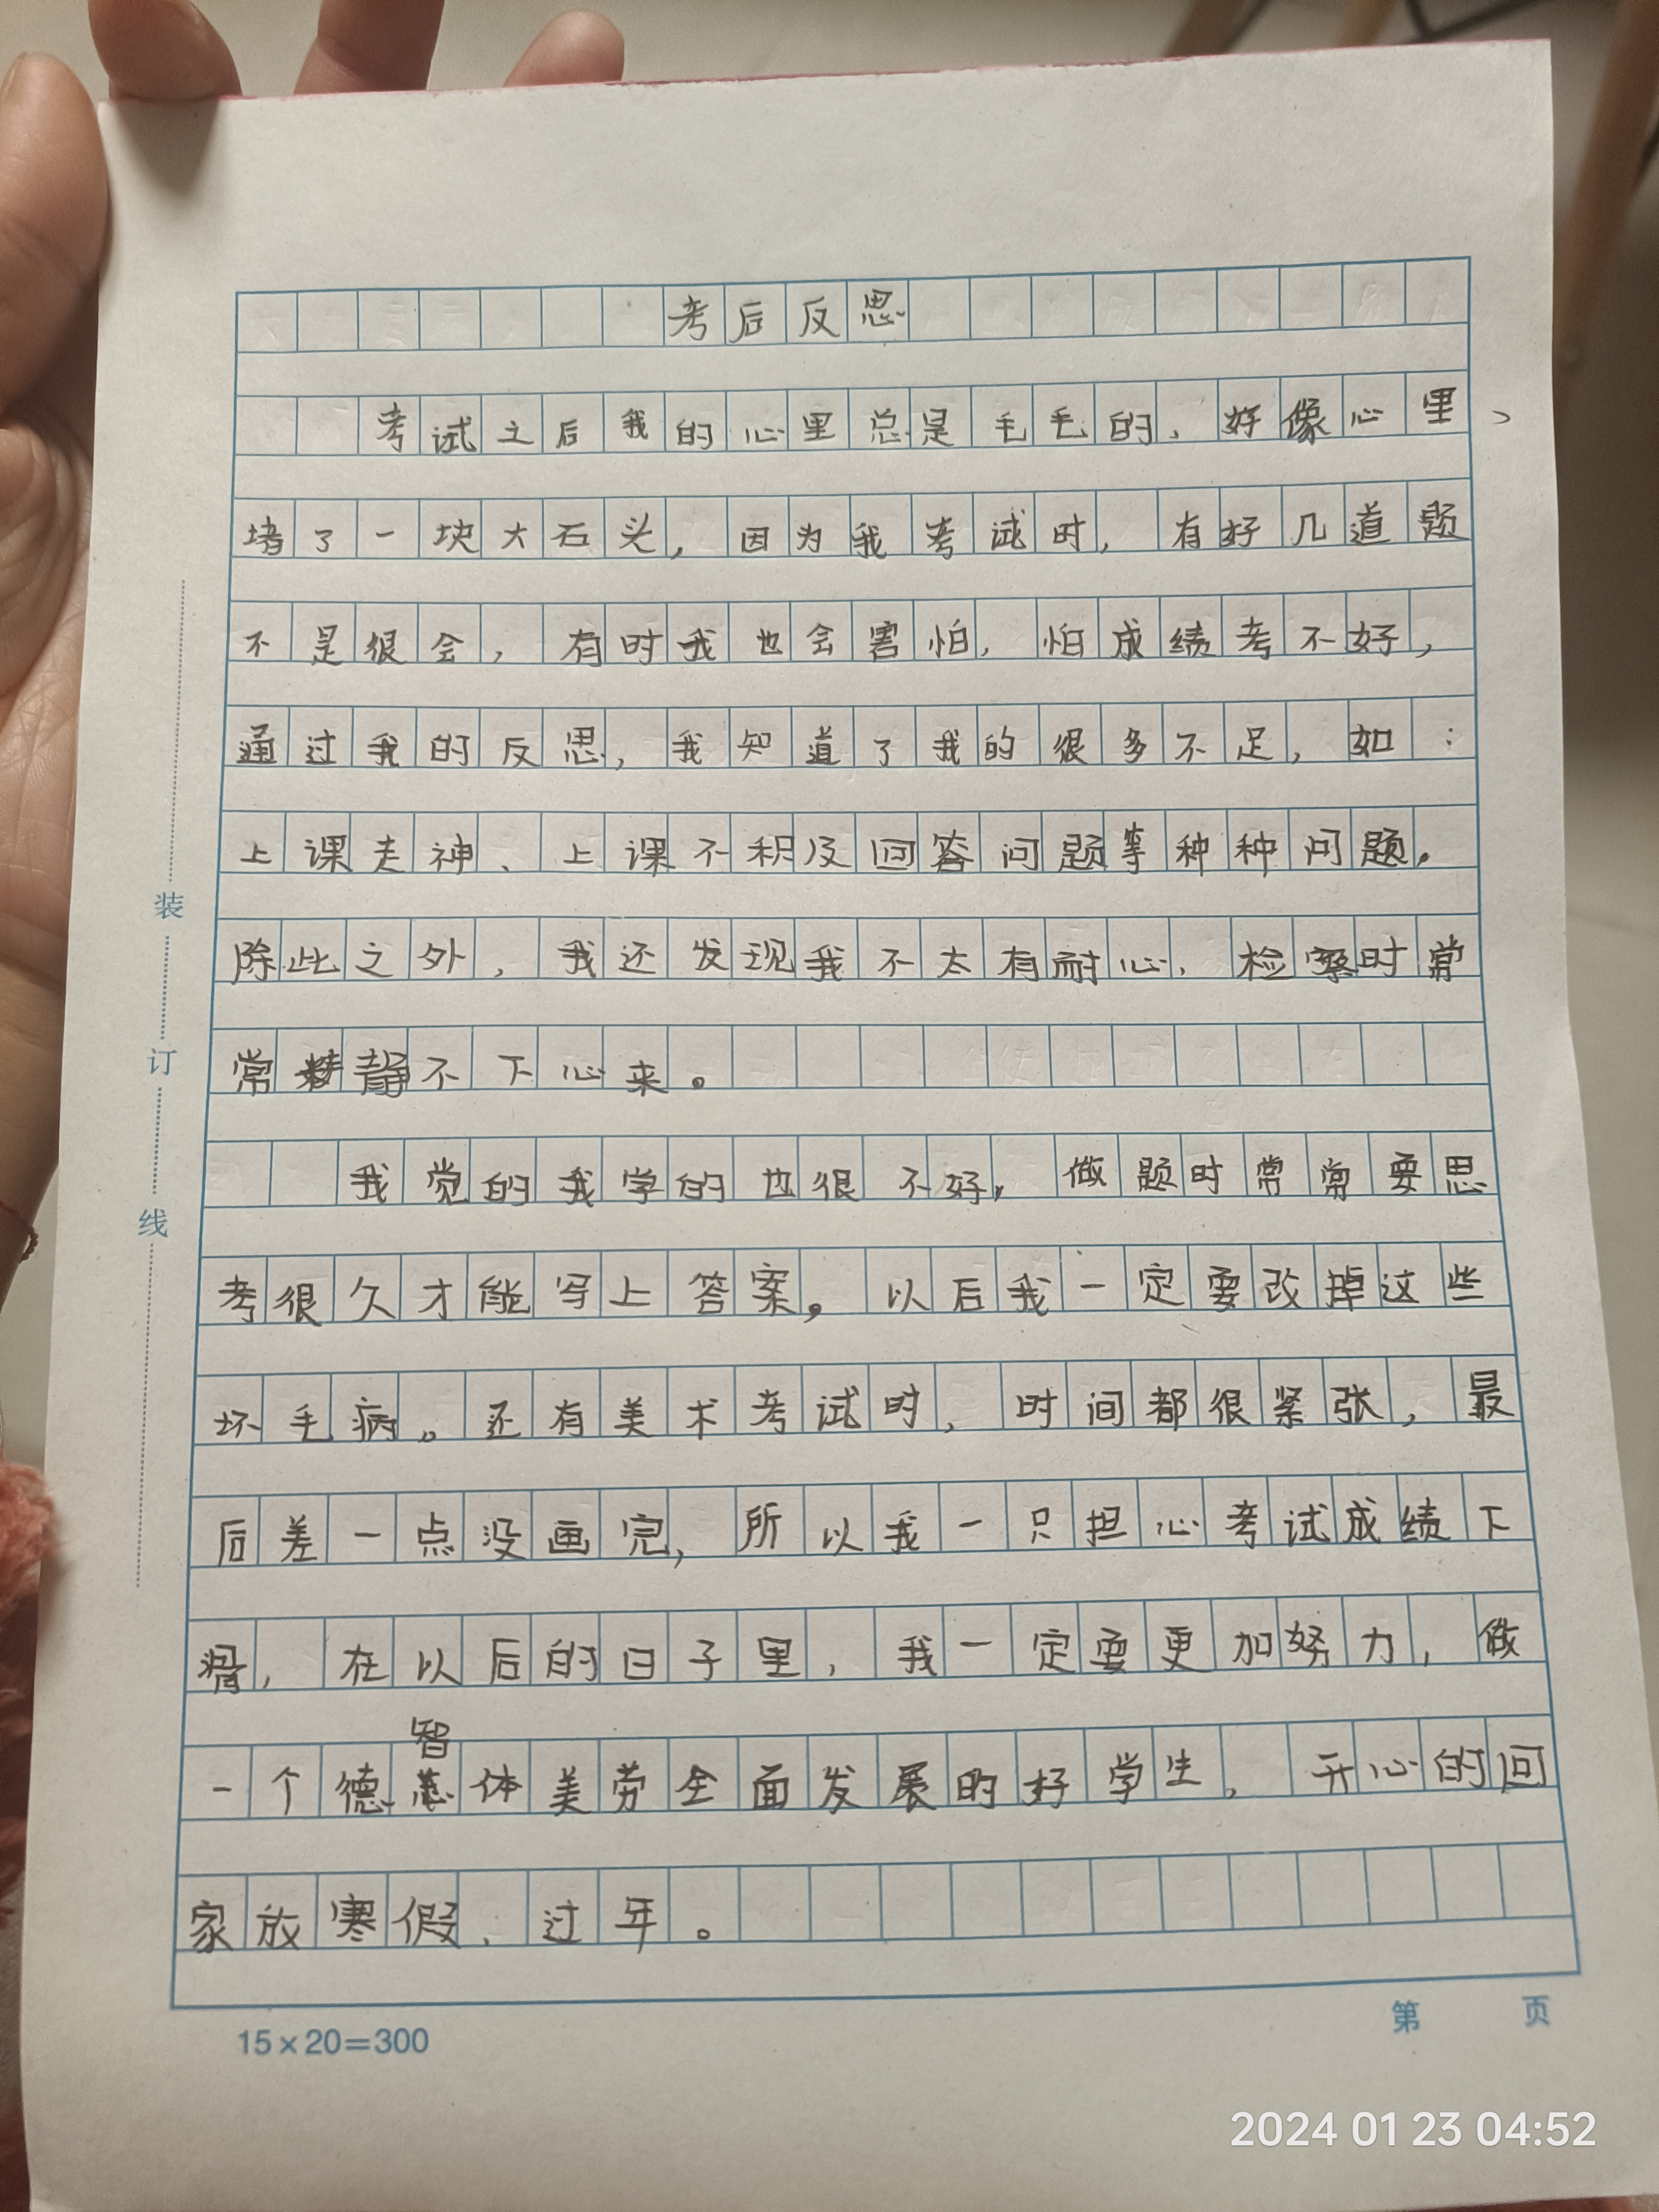 考后反思
考试之后我的心里总是毛毛的，好像心里
堵了一块大石头，因为我考试时，有好几道题
不是很会，有时我也会害怕，怕成绩考不好，
通过我的反思，我知道了我的很多不足，如：
上课走神、上课不积及回答问题等种种问题。
除此之外，我还发现我不太有耐心，检察时常
常静不下心来。
我觉的我学的也很不好，做题时常常要思
考很久才能写上答案。以后我一定要改掉这些
坏毛病。还有美术考试时，时间都很紧张，最
后差一点没画完，所以我一只担心考试成绩下
滑，在以后的日子里，我一定要更加努力，做
智
一个德体美劳全面发展的好学生，开心的回
家放寒假、过年。
装
订
线
15×20=300
第 页
2024 01 23 04:52